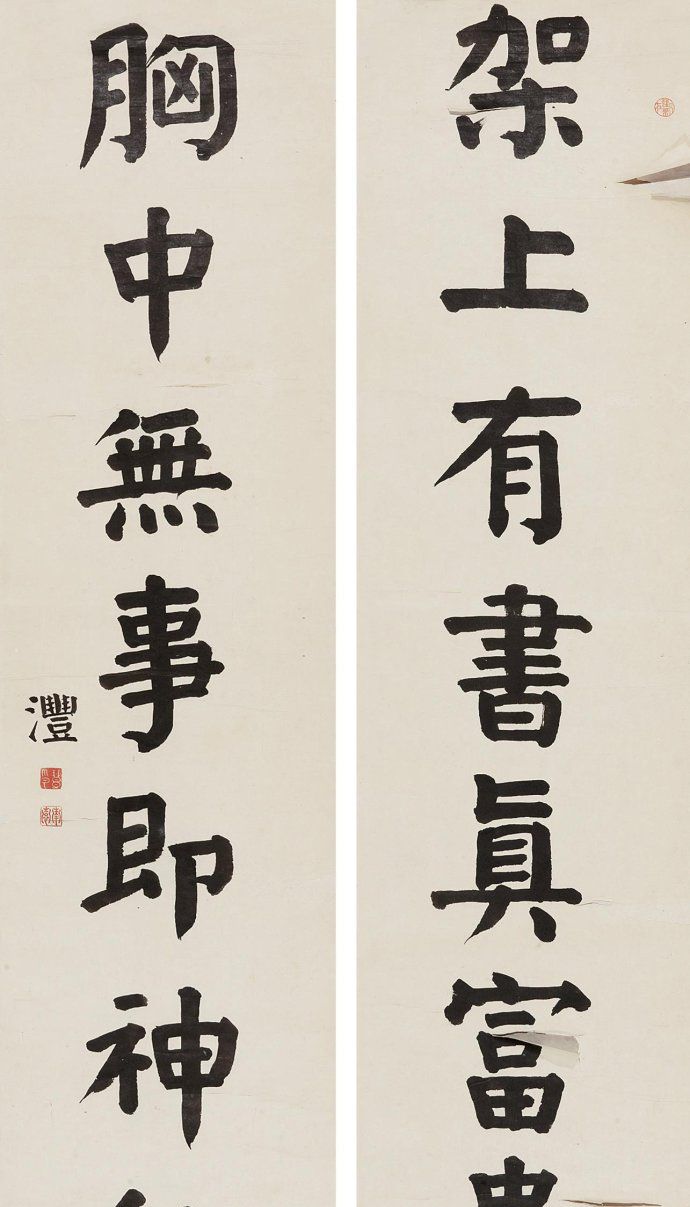 架上有書眞富
胸中無事即神
灃